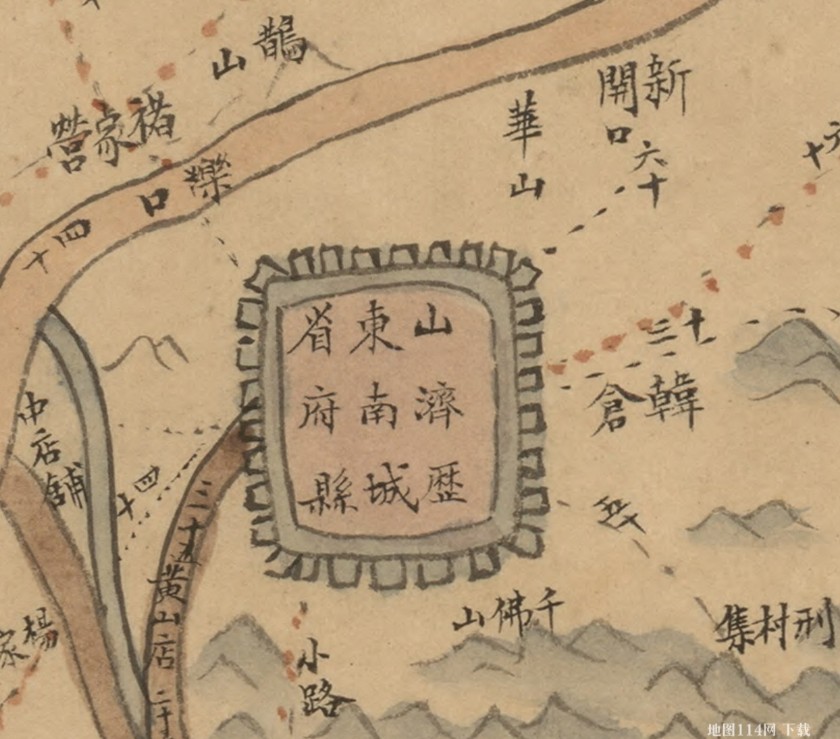 鵲山
褚家營
濼口
四十
華山
新開口
六十
十三
韓倉
山東省
濟南府
歷城縣
中店舖
四十
三十五
黃山店
二十
楊家
千佛山
小路
邢村集
地图114网 下载